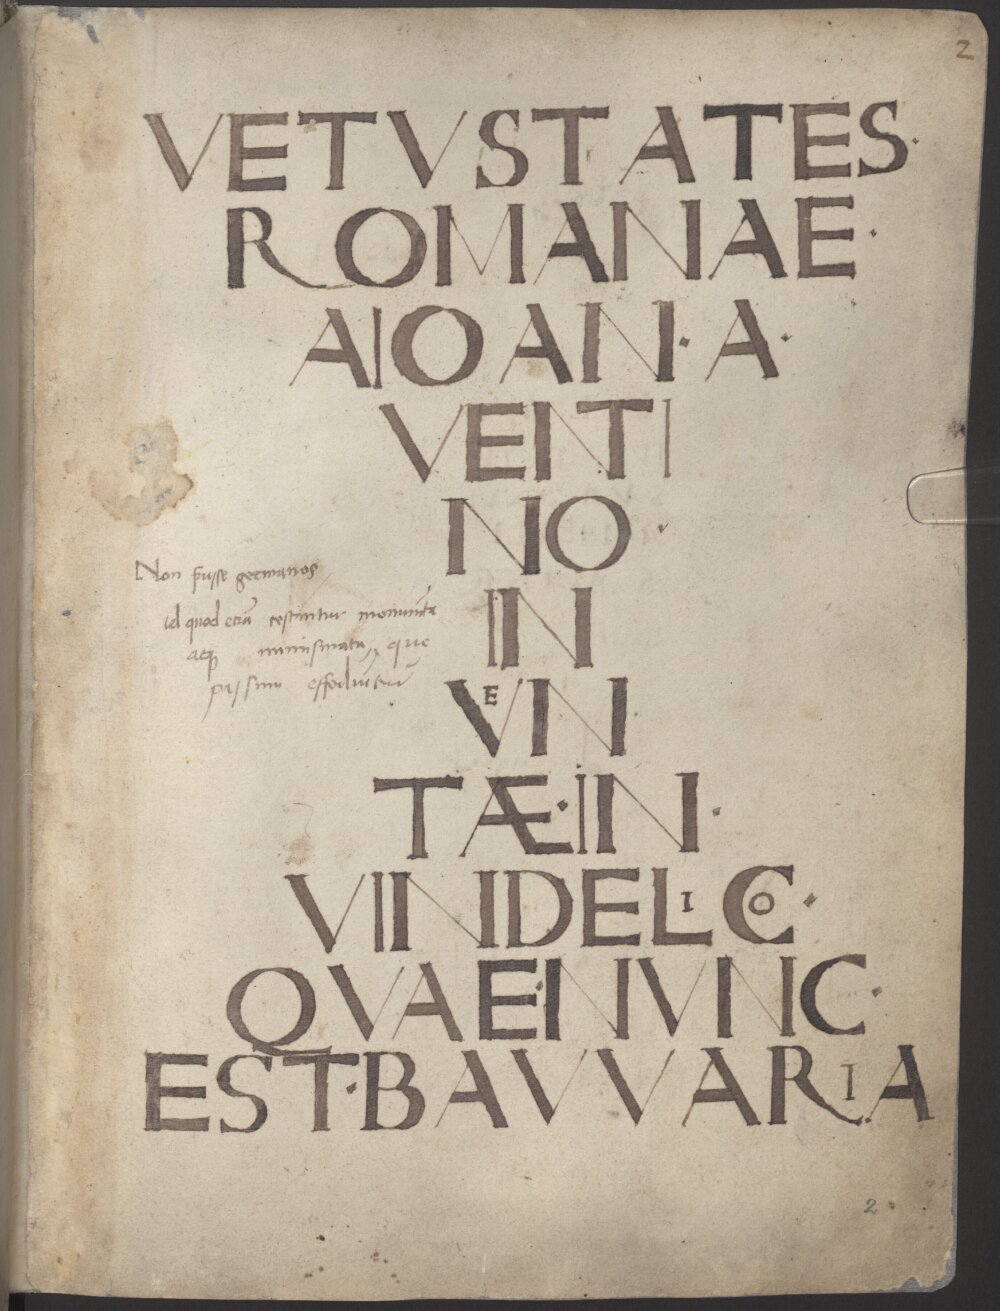 2
VETVSTATES·
ROMANAE·
AIOAN·A·
VENTI
NO·
IN
VEN
TÆ·IN·
VINDELICO·
QVAE·NVNC·
EST·BAVVARIA
Non fuisse germanos
id quod etiã testantur
atq numismata, que
2